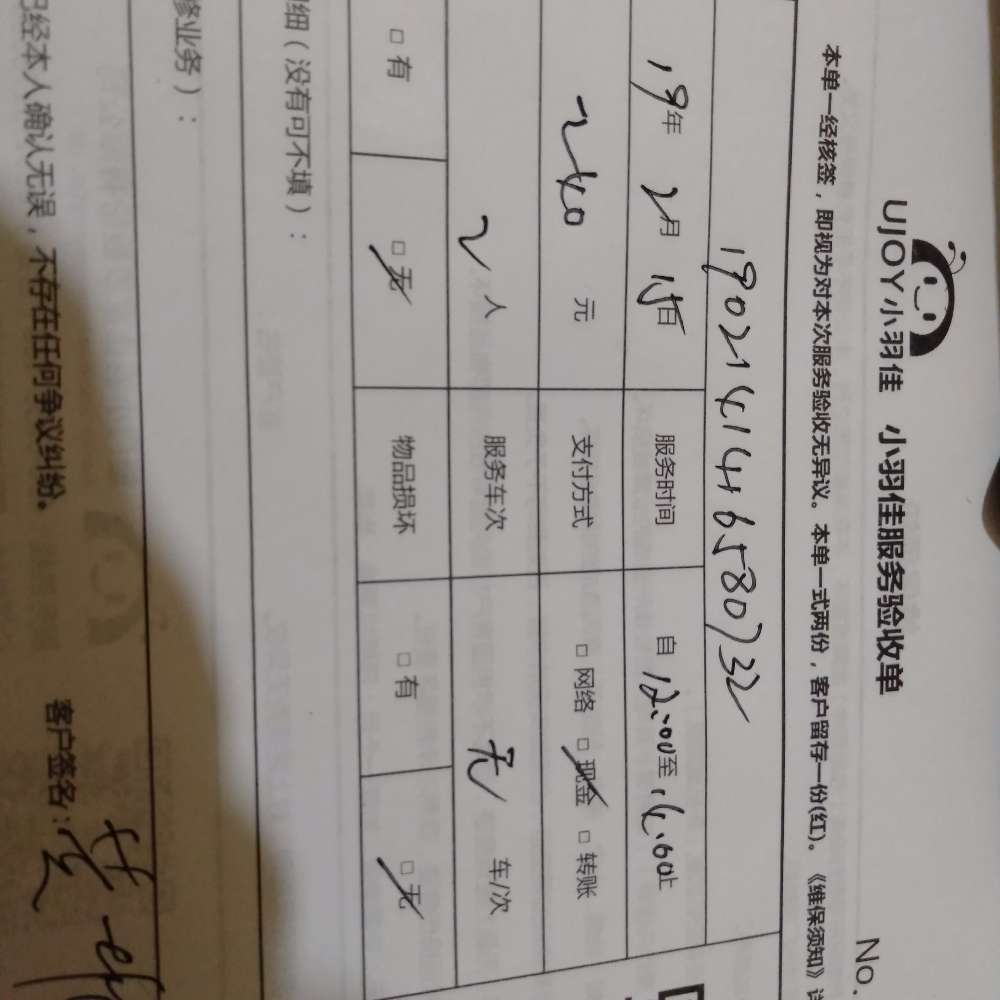 UJOY小羽佳 小羽佳服务验收单
No.
本单一经核签，即视为对本次服务验收无异议。本单一式两份，客户留存一份(红)。《维保须知》
19021414146580732
19年2月15日 服务时间 自12:00至16:00止
240元 支付方式 □网络 □现金 □转账
2人 服务车次 无 车/次
□有 □无 物品损坏 □有 □无
细（没有可不填）：
修业务）：
已经本人确认无误，不存在任何争议纠纷。 客户签名：